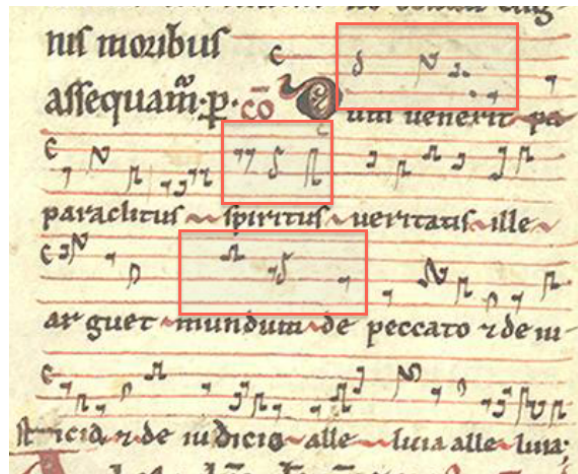 nis moribus
assequam̄·p̲·co̅
Cum venerit pa
paraclitus spiritus veritatis ille
ar guet mundum de peccato ⁊ de iu
st icia ⁊ de iudicio alle luia alle luia: